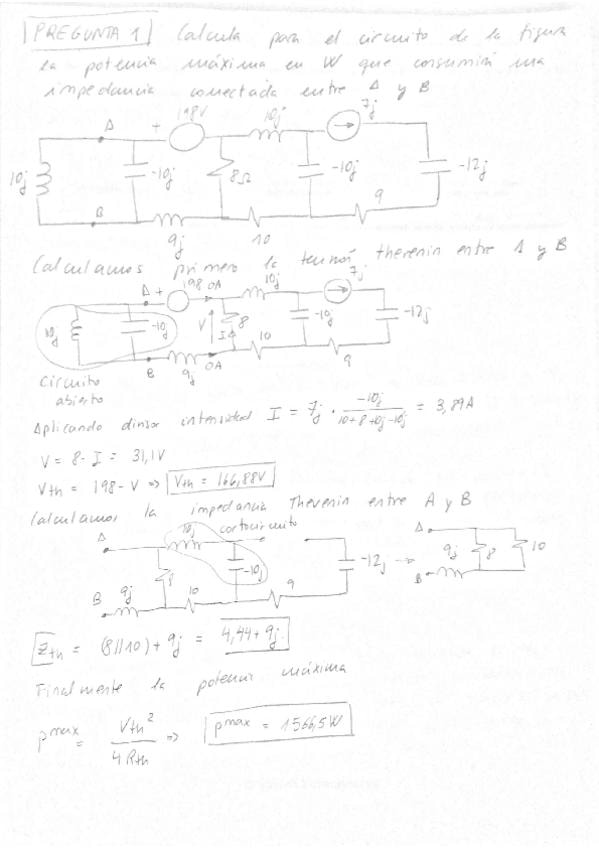 PREGUNTA 1 Calcula para el circuito de la figura
la potencia máxima en W que consumirá una
impedancia conectada entre A y B
A + 198V 10j 7j
10j -10j 8Ω -10j -12j
B 9j 10 9
Calculamos primero la tensión thevenin entre A y B
A + 198 0A 10j 7j
10j -10j V I 8 -10j -12j
B 9j 0A 10 9
circuito
abierto
Aplicando divisor intensidad I = 7j · -10j / 10+8+10j-10j = 3,89A
V = 8·I = 31,1V
Vth = 198-V => Vth = 166,88V
Calculamos la impedancia Thevenin entre A y B
A 10j cortocircuito A
8 -10j -12j → 9j 8 10
B 9j 10 9 B
Zth = (8//10) + 9j = 4,44 + 9j.
Finalmente la potencia máxima
pmax = Vth² / 4Rth => pmax = 1566,5W